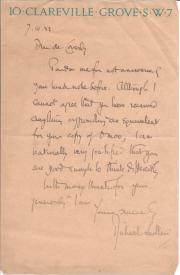 10 · CLAREVILLE · GROVE · S · W · 7
Pardon me for not answering
your kind note before. Although I
cannot agree that you have received
anything approaching an equivalent
for your copy of Omoo, I am
naturally very gratified that you
are good enough to think differently
With more thanks for your
generosity I am
Yours sincerely
Michael Sadleir